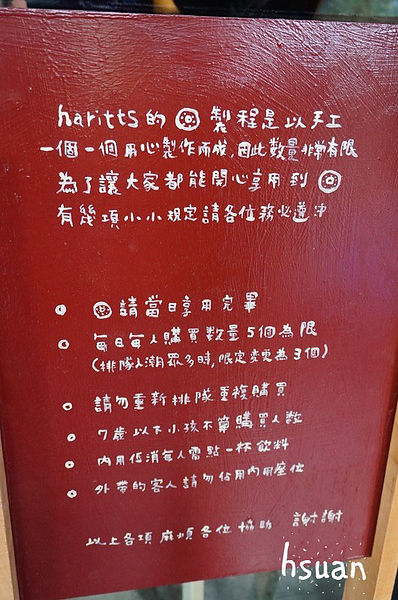 haritts的 製程是以手工
一個一個用心製作而成,因此數量非常有限
為了讓大家都能開心享用到
有幾項小小規定請各位務必遵守
請當日享用完畢
每日每人購買數量5個為限
(排隊人潮眾多時,限定變更為3個)
請勿重新排隊重複購買
7歲以下小孩不算購買人数
內用低消每人需點一杯飲料
外帶的客人請勿佔用內用座位
以上各項麻煩各位協助 謝謝
hsuan